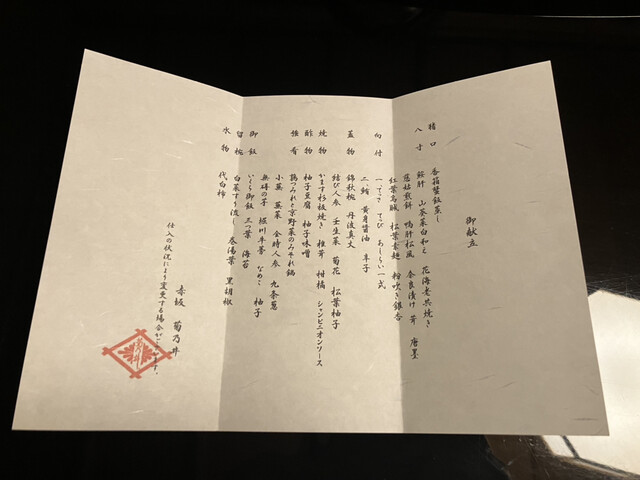 御献立
猪口 香箱蟹飯蒸し
八寸 鮟肝 山茶菜白和え 花海老共焼き
慈姑煎餅 鴨肝松風 奈良漬け 芥 唐墨
紅葉烏賊 松葉素麺 粉吹き銀杏
向付 一、てっさ てっぴ あしらい一式
二、鮪 黄身醤油 辛子
蓋物 錦秋椀 丹波真丈
結び人参 壬生菜 菊花 松葉柚子
焼物 かますぎ板焼き 椎茸 柑橘 シャンピニオンソース
酢物 柚子豆腐 柚子味噌
強肴 鶏つみれと京野菜のみぞれ鍋
小蕪 蕪菜 金時人参 九条葱
堀川牛蒡 なめこ 柚子
御飯 いくら御飯 三つ葉 海苔
留椀 白菜すり流し 巻湯葉 黒胡椒
水物 代白柿
赤坂 菊乃井
仕入の状況により変更する場合がございます。